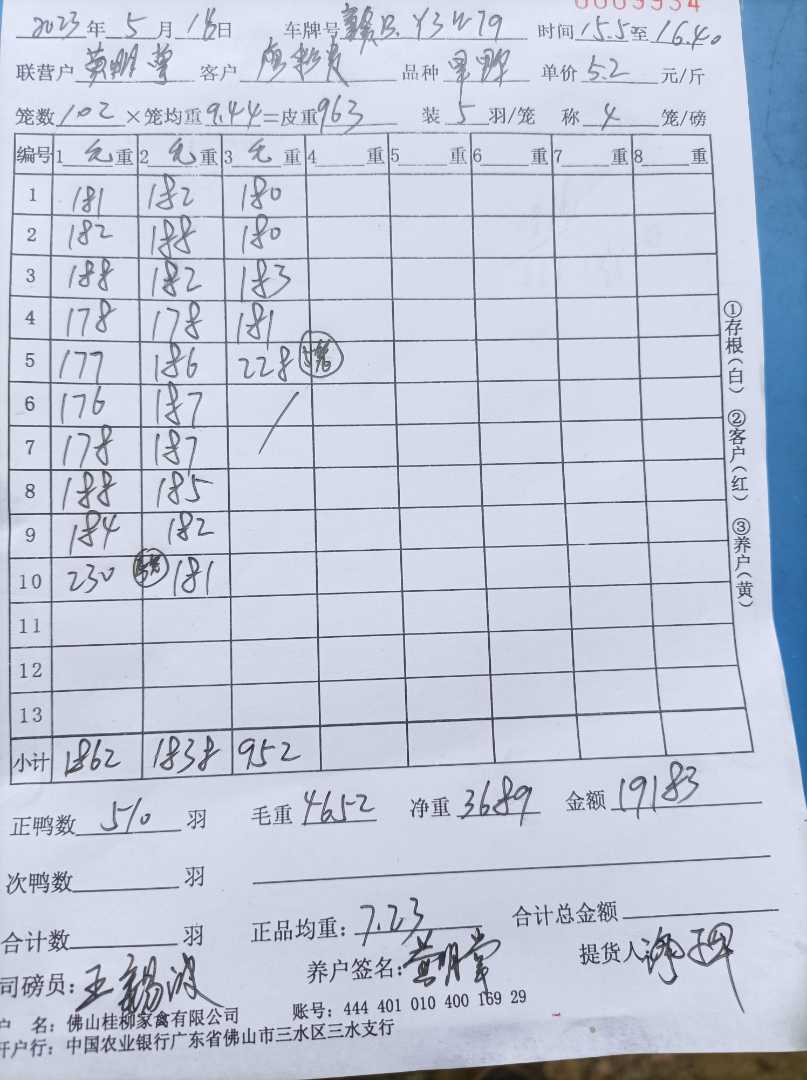 0009934
2023年5月18日 车牌号赣B.Y3W79 时间15.5至16.40
联营户黄明 客户 品种 单价5.2元/斤
笼数102×笼均重9.44=皮重963 装5羽/笼 称4笼/磅
编号 1元重 2元重 3元重 4重 5重 6重 7重 8重
1 181 182 180
2 182 188 180
3 188 182 183
4 178 178 181
5 177 186 228
6 176 187 /
7 178 187
8 188 185
9 184 182
10 230 181
11
12
13
小计 1862 1838 952
①存根(白) ②客户(红) ③养户(黄)
正鸭数510羽 毛重4652 净重3689 金额19183
次鸭数羽
合计数羽 正品均重:7.23 合计总金额
司磅员:王锡波 养户签名:黄明 提货人
户 名:佛山桂柳家禽有限公司 账号:444 401 010 400 169 29
开户行:中国农业银行广东省佛山市三水区三水支行